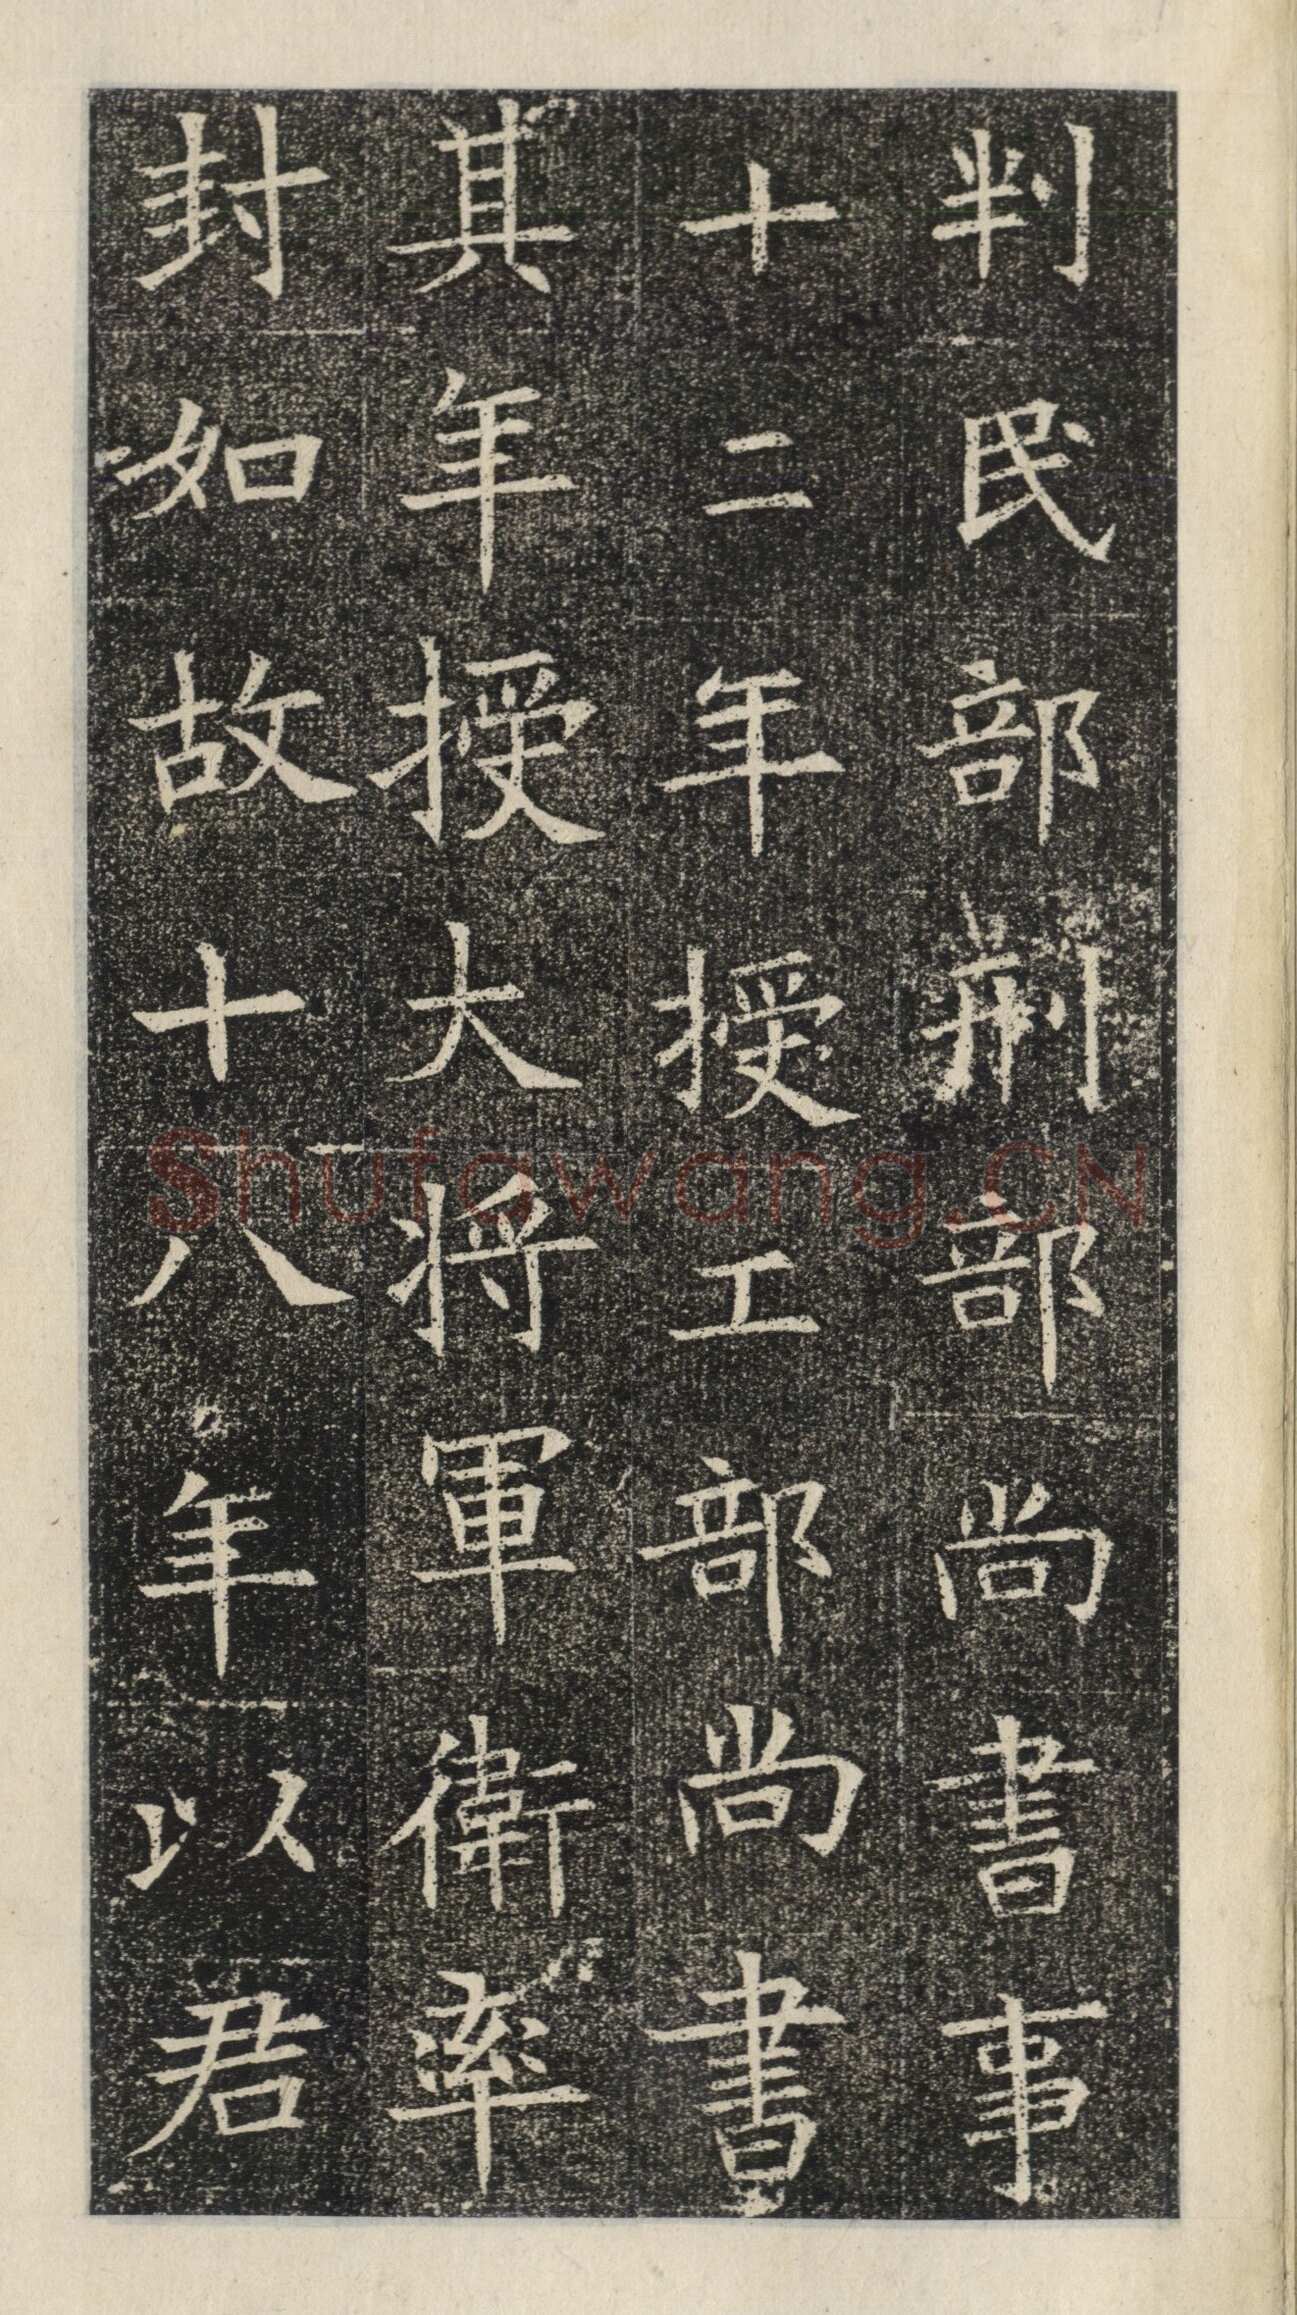 判民部刑部尚書事
十二年授工部尚書
其年授大將軍衛率
封如故十八年以君
Shufawang.CN